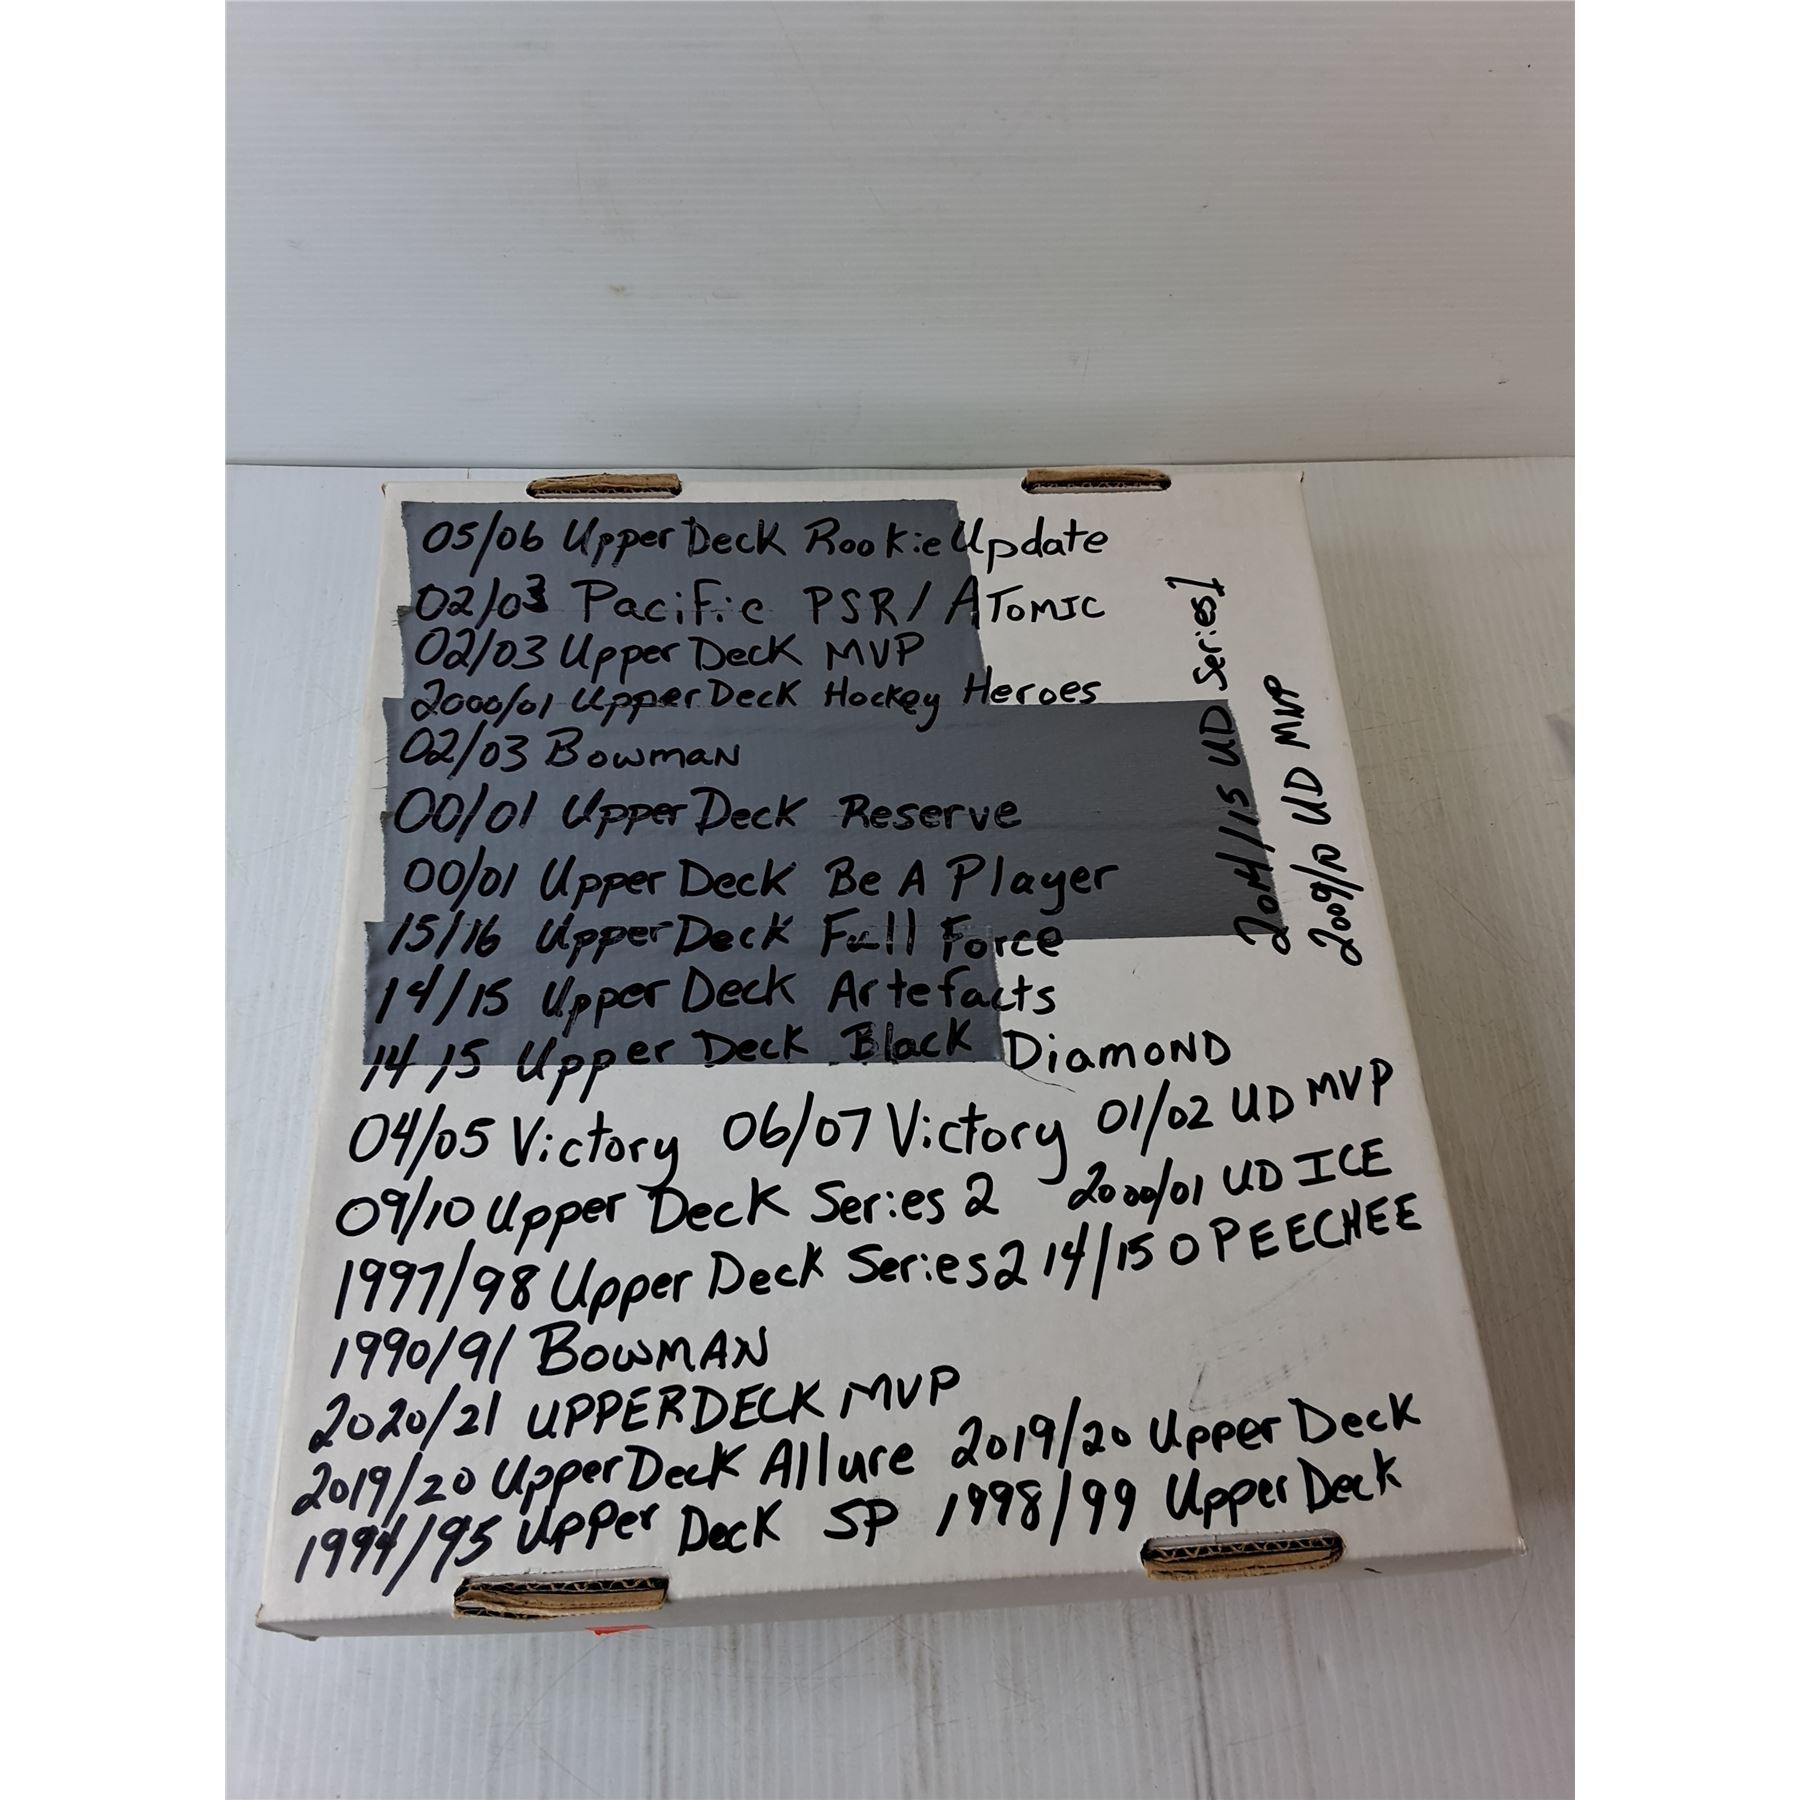 05/06 Upper Deck Rookie Update
02/03 Pacific PSR/ATOMIC
02/03 Upper Deck MVP
2000/01 Upper Deck Hockey Heroes
02/03 BOWMAN
00/01 Upper Deck Reserve
00/01 Upper Deck Be A Player
15/16 Upper Deck Full Force
14/15 Upper Deck Artefacts
14/15 Upper Deck Black DiamOND
04/05 Victory 06/07 Victory 01/02 UD MVP
09/10 Upper Deck Series 2 2000/01 UD ICE
1997/98 Upper Deck Series 2 14/15 O PEECHEE
1990/91 BOWMAN
2020/21 UPPERDECK MVP
2019/20 Upper Deck Allure 2019/20 Upper Deck
1994/95 Upper Deck SP 1998/99 Upper Deck
2014/15 UD Series 1
2009/10 UD MVP